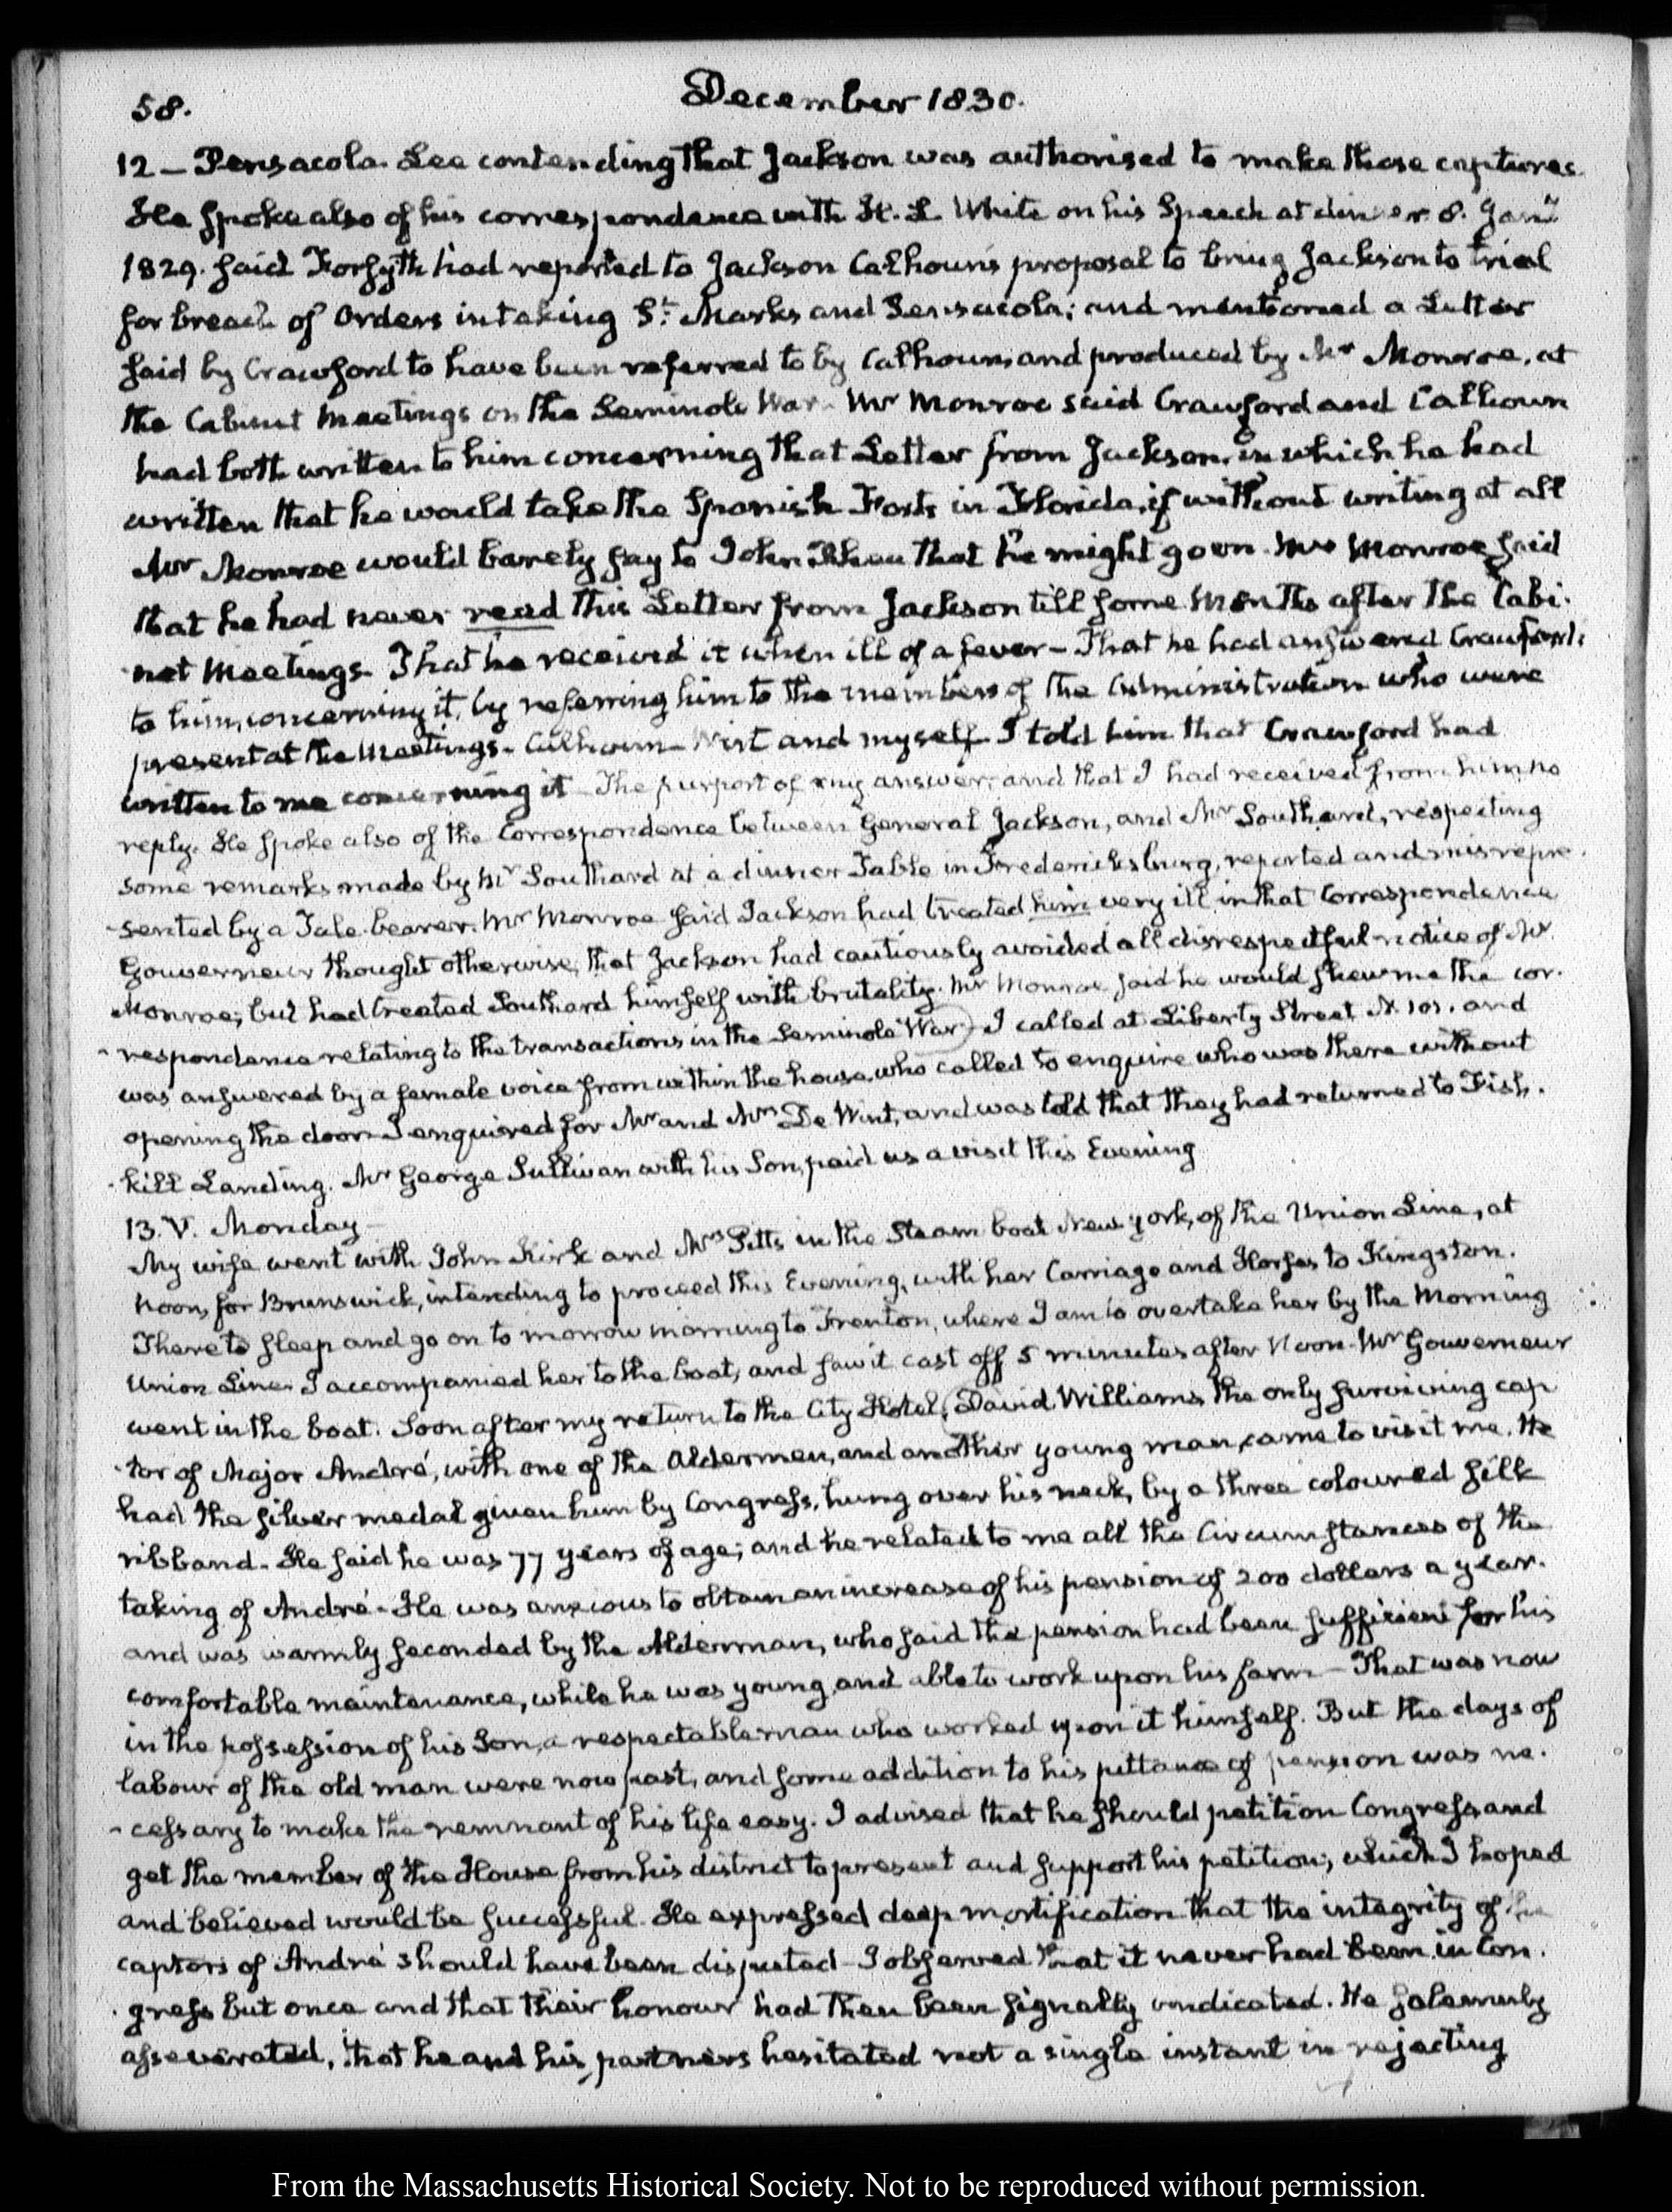 58.
December 1830.
12 – Pensacola. Lee contending that Jackson was authorised to make those captures
He spoke also of his correspondence with H. L. White on his Speech at dinner 8. Jany
1829. said Forsyth had reported to Jackson Calhoun's proposal to bring Jackson to trial
for breach of Orders in taking St. Marks and Pensacola; and mentioned a Letter
said by Crawford to have been referred to by Calhoun, and produced by Mr Monroe, at
the Cabinet Meetings on the Seminole War. Mr Monroe said Crawford and Calhoun
had both written to him concerning that Letter from Jackson, in which he had
written that he would take the Spanish Forts in Florida, if without writing at all
Mr Monroe would barely say to John Rhea that he might go on. Mr Monroe said
that he had never read this Letter from Jackson till some Months after the Cabi-
-net Meetings. That he received it when ill of a fever – That he had answered Crawford's
to him, concerning it, by referring him to the members of the Administration who were
present at the Meetings – Calhoun – Wirt and myself – I told him that Crawford had
written to me concerning it – The purport of my answer; and that I had received from him no
reply. He spoke also of the Correspondence between General Jackson, and Mr Southard, respecting
some remarks made by Mr Southard at a dinner Table in Fredericksburg, reported and misrepre-
-sented by a Tale-bearer. Mr Monroe said Jackson had treated him very ill in that Correspondence
Gouverneur thought otherwise; that Jackson had cautiously avoided all disrespectful notice of Mr
Monroe; but had treated Southard himself with brutality. Mr Monroe said he would shew me the cor-
-respondence relating to the transactions in the Seminole War – I called at Liberty Street N. 101. and
was answered by a female voice from within the house, who called to enquire who was there without
opening the door – I enquired for Mr and Mrs De Wint, and was told that they had returned to Fish-
-kill Landing. Mr George Sullivan with his Son, paid us a visit this Evening
13. V. Monday –
My wife went with John Kirk and Mrs Pitts in the Steam boat New York, of the Union Line, at
Noon, for Brunswick, intending to proceed this Evening, with her Carriage and Horses to Kingston.
There to sleep and go on to morrow morning to Trenton, where I am to overtake her by the Morning
Union Line. I accompanied her to the boat, and saw it cast off 5 minutes after Noon. Mr Gouverneur
went in the boat. Soon after my return to the City Hotel, David Williams, the only surviving cap
-tor of Major André, with one of the Aldermen, and another young man, came to visit me. He
had the silver medal given him by Congress, hung over his neck, by a three coloured silk
ribband – He said he was 77 years of age; and he related to me all the Circumstances of the
taking of André – He was anxious to obtain an increase of his pension of 200 dollars a year.
and was warmly seconded by the Alderman, who said the pension had been sufficient for his
comfortable maintenance, while he was young, and able to work upon his farm – That was now
in the possession of his Son, a respectable man who worked upon it himself. But the days of
labour of the old man were now past, and some addition to his pittance of pension was ne-
-cessary to make the remnant of his life easy. I advised that he should petition Congress, and
get the member of the House from his district to present and support his petition; which I hoped
and believed would be successful. He expressed deep mortification that the integrity of the
captors of André should have been disputed – I observed that it never had been in Con-
-gress but once and that their honour had then been signally vindicated. He solemnly
asseverated, that he and his partners hesitated not a single instant in rejecting
From the Massachusetts Historical Society. Not to be reproduced without permission.